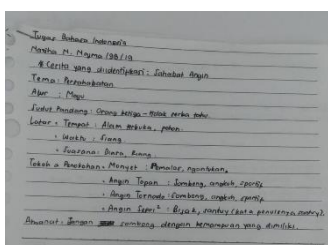 Tugas Bahasa Indonesia
Martha M. Mayma /9B/19
# Cerita yang diidentifikasi : Sahabat Angin
Tema : Persahabatan
Alur : Maju
Sudut Pandang : Orang ketiga - tidak serba tahu.
Latar • Tempat : Alam terbuka, pohon.
• Waktu : Siang
• Suasana : Diara, Riang.
Tokoh & Penokohan • Monyet : Pemalas, ngantukan,
• Angin Topan : Sombong, angkuh, sportif
• Angin Tornado : Sombong, angkuh, sportif
• Angin Sepoi² : Bijak, santuy (kata penulisnya santuy).
Amanat : Jangan sombong dengan kemampuan yang dimiliki.